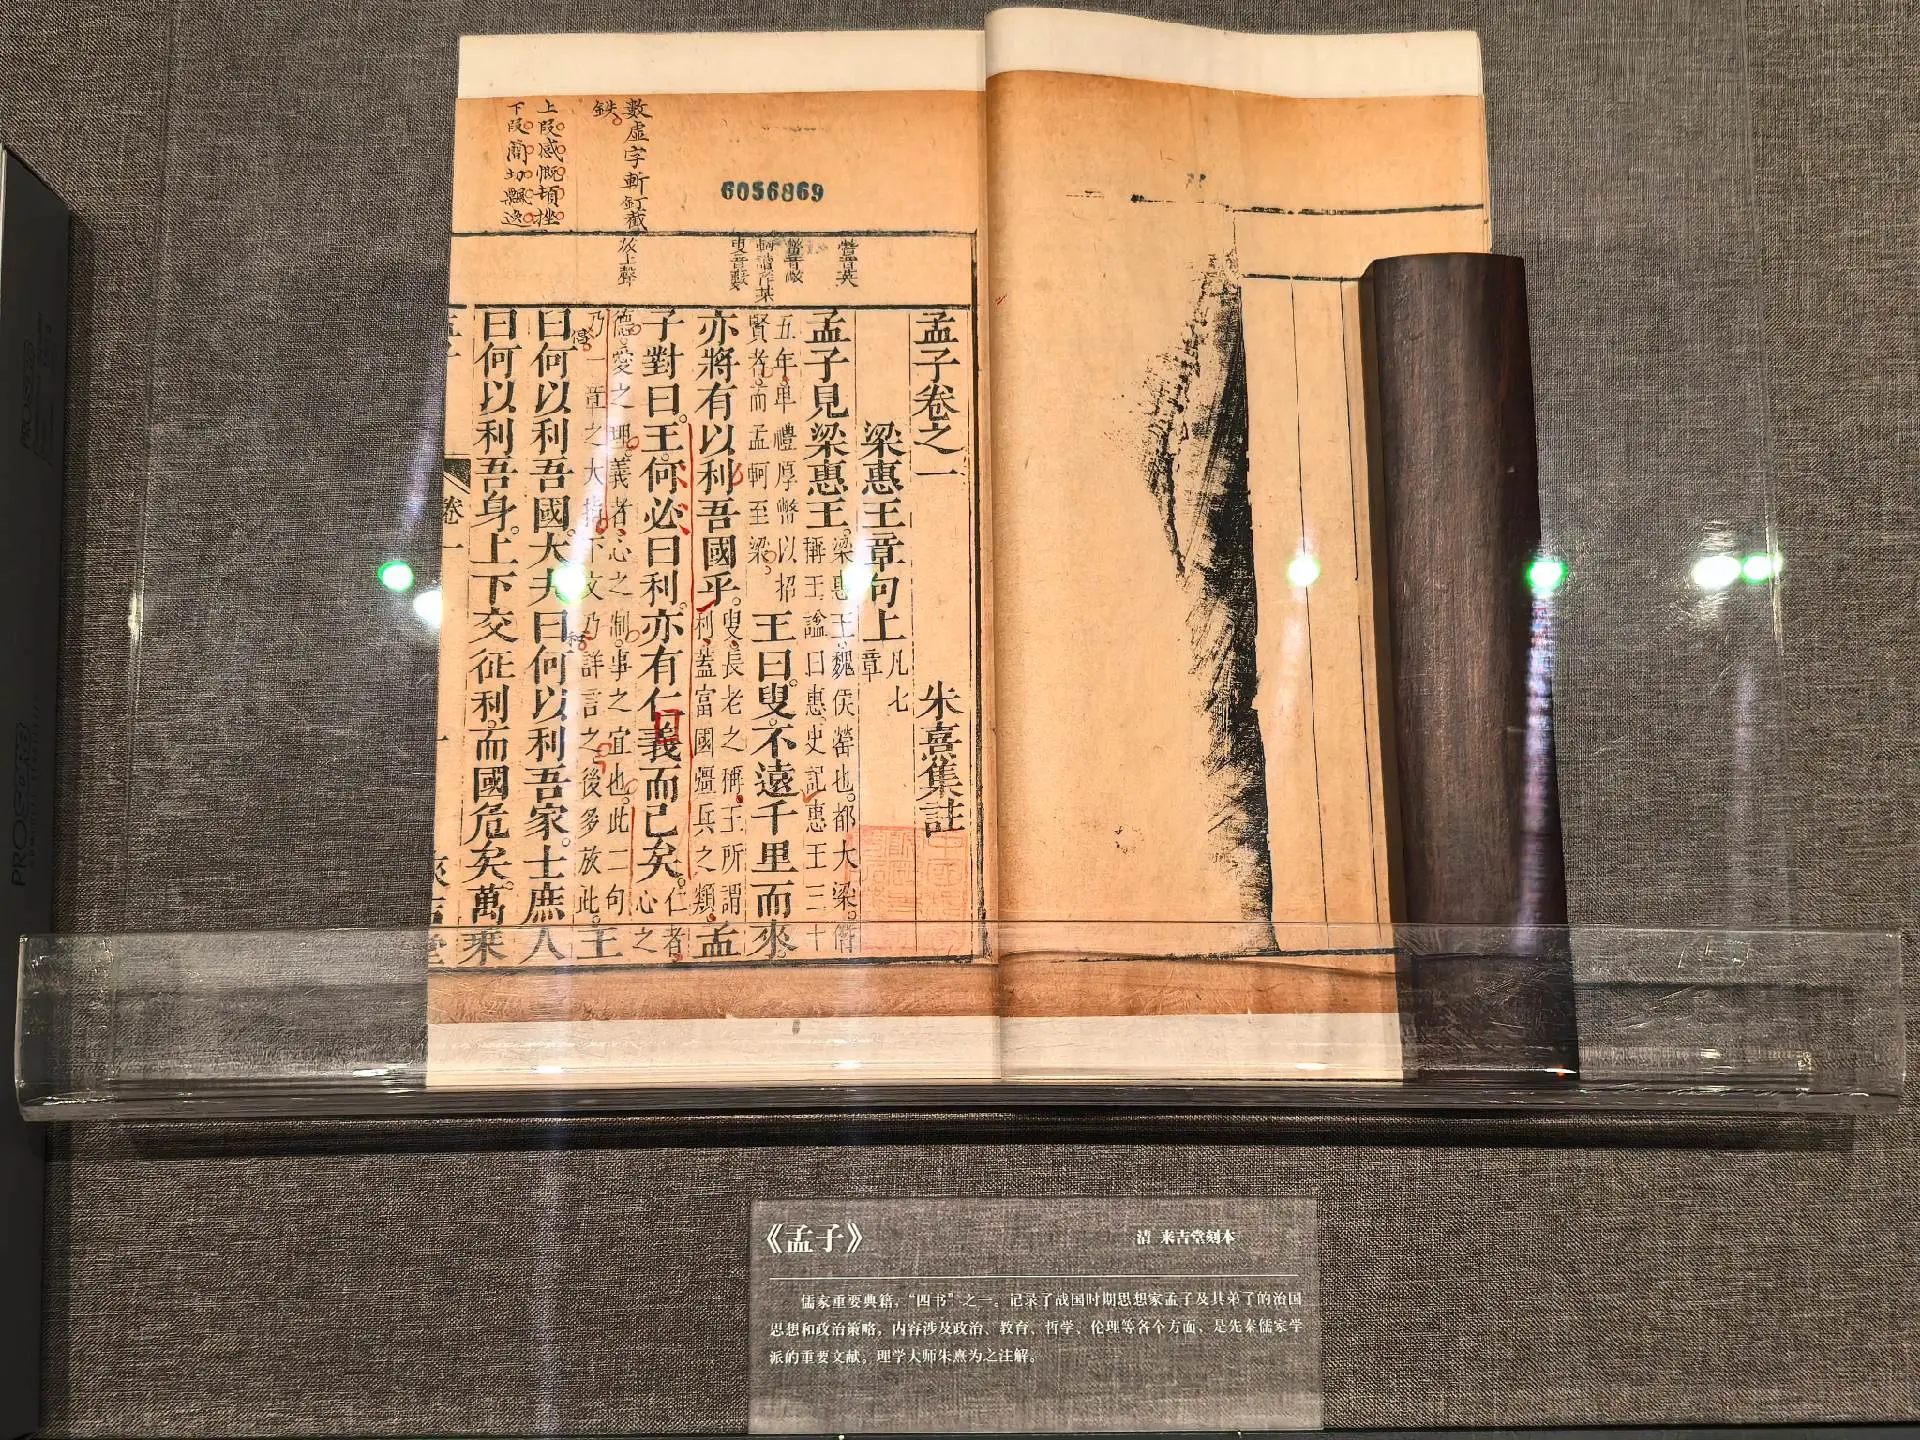 數虛字斬釘截
鉄
上段感慨頓挫
下段簡切飄逸
6056869
孟子卷之一
朱熹集註
梁惠王章句上
凡七
章
孟子見梁惠王。
梁惠王魏侯罃也。都大梁。僭
稱王謚曰惠史記惠王三十
五年卑禮厚幣以招
賢者而孟軻至梁。
王曰。叟。不遠千里而來。
亦將有以利吾國乎。
叟長老之稱王所謂
利蓋富國彊兵之類
孟
子對曰。王。何必曰利。亦有仁義而已矣。
仁者心之
德愛之理。義者心之制事之宜也。此二句
乃一章之大指下文乃詳言之後多放此。
王
曰何以利吾國。大夫曰何以利吾家。士庶人
曰何以利吾身。上下交征利。而國危矣。萬乘
卷一
《孟子》
清 来吉堂刻本
儒家重要典籍,“四书”之一。记录了战国时期思想家孟子及其弟子的治国
思想和政治策略,内容涉及政治、教育、哲学、伦理等各个方面,是先秦儒家学
派的重要文献。理学大师朱熹为之注解。